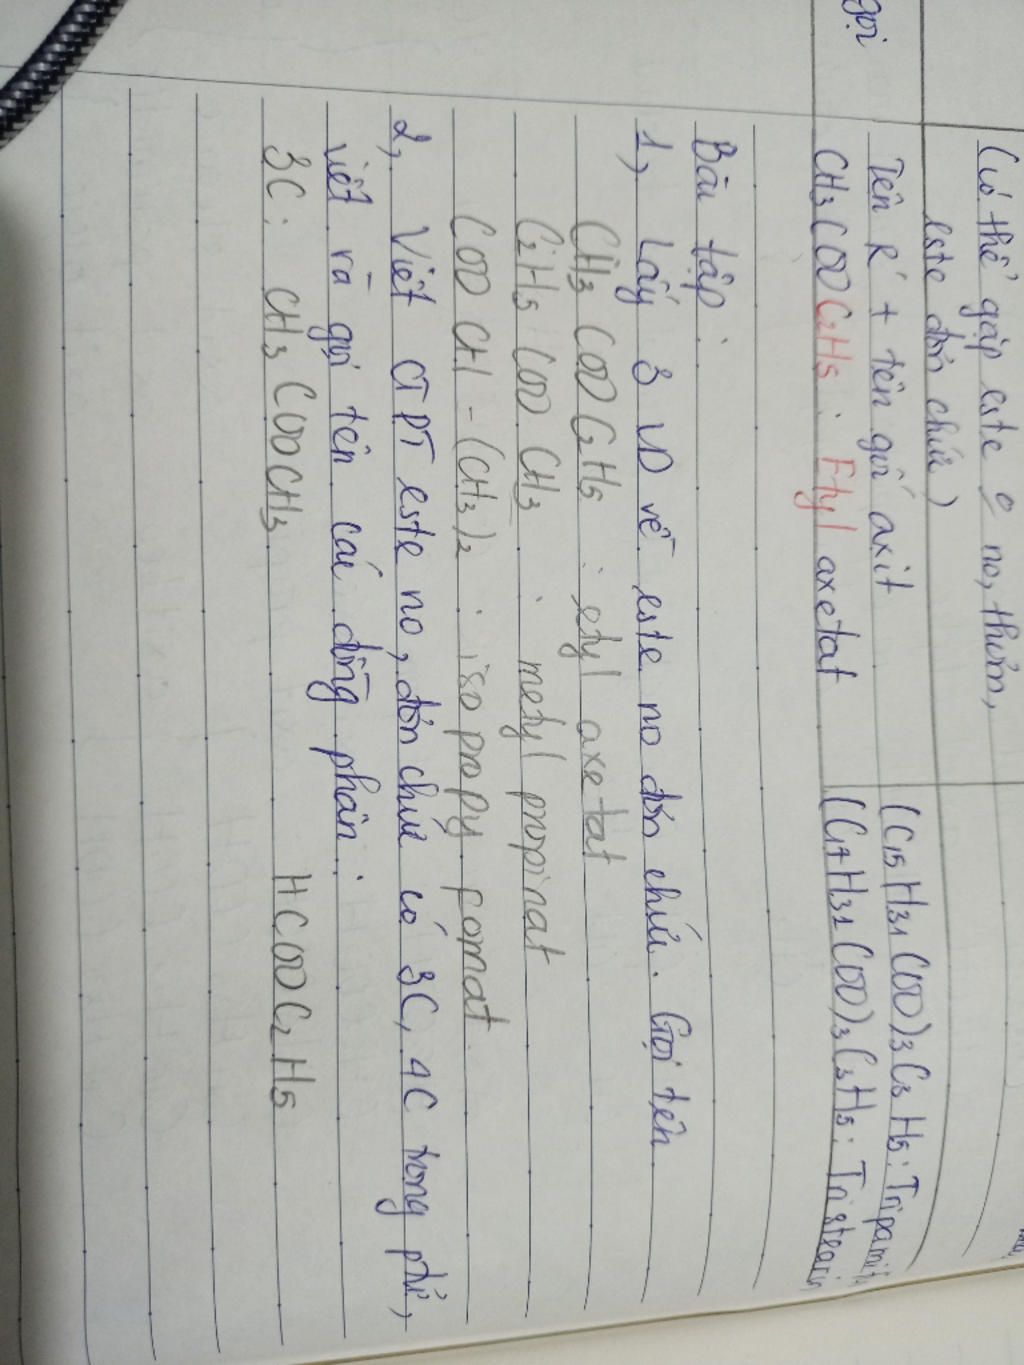 gọi
(có thể gặp este e no, thơm,
este đơn chức)
Tên R' + tên gốc axit
CH3COOC2H5 : Etyl axetat
(C15H31COO)3C3H5 : Tripamit
(C17H31COO)3C3H5 : Tristearin
Bài tập :
1, Lấy 3 VD về este no đơn chức. Gọi tên
CH3COOC2H5 : etyl axetat
C2H5COOCH3 : metyl propinat
COOCH-(CH3)2 : iso propy fomat
2, Viết CTPT este no, đơn chức có 3C, 4C trong ptử,
viết và gọi tên các đồng phân :
3C : CH3COOCH3 HCOOC2H5